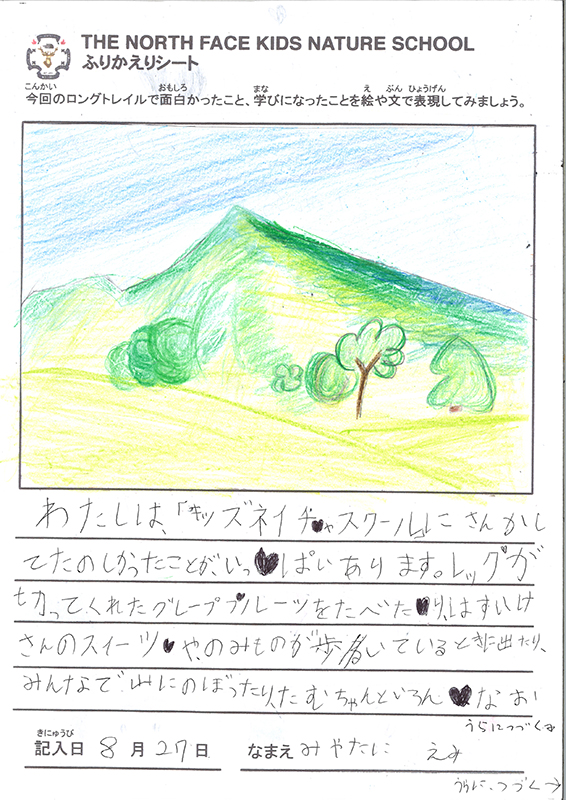 THE NORTH FACE KIDS NATURE SCHOOL
ふりかえりシート
こんかい おもしろ まな え ぶん ひょうげん
今回のロングトレイルで面白かったこと、学びになったことを絵や文で表現してみましょう。
わたしは、「キッズネイチャスクール」にさんかし
てたのしかったことが、いっぱいあります。レッグが
切ってくれたグレープフルーツをたべたり、はすいけ
さんのスイーツや、のみものが歩いているときに出たり、
みんなで山にのぼったり、たむちゃんといろんなお
うらにつづく
きにゅうび
記入日 8月27日 なまえ みやたに えま
うらに、つづく→